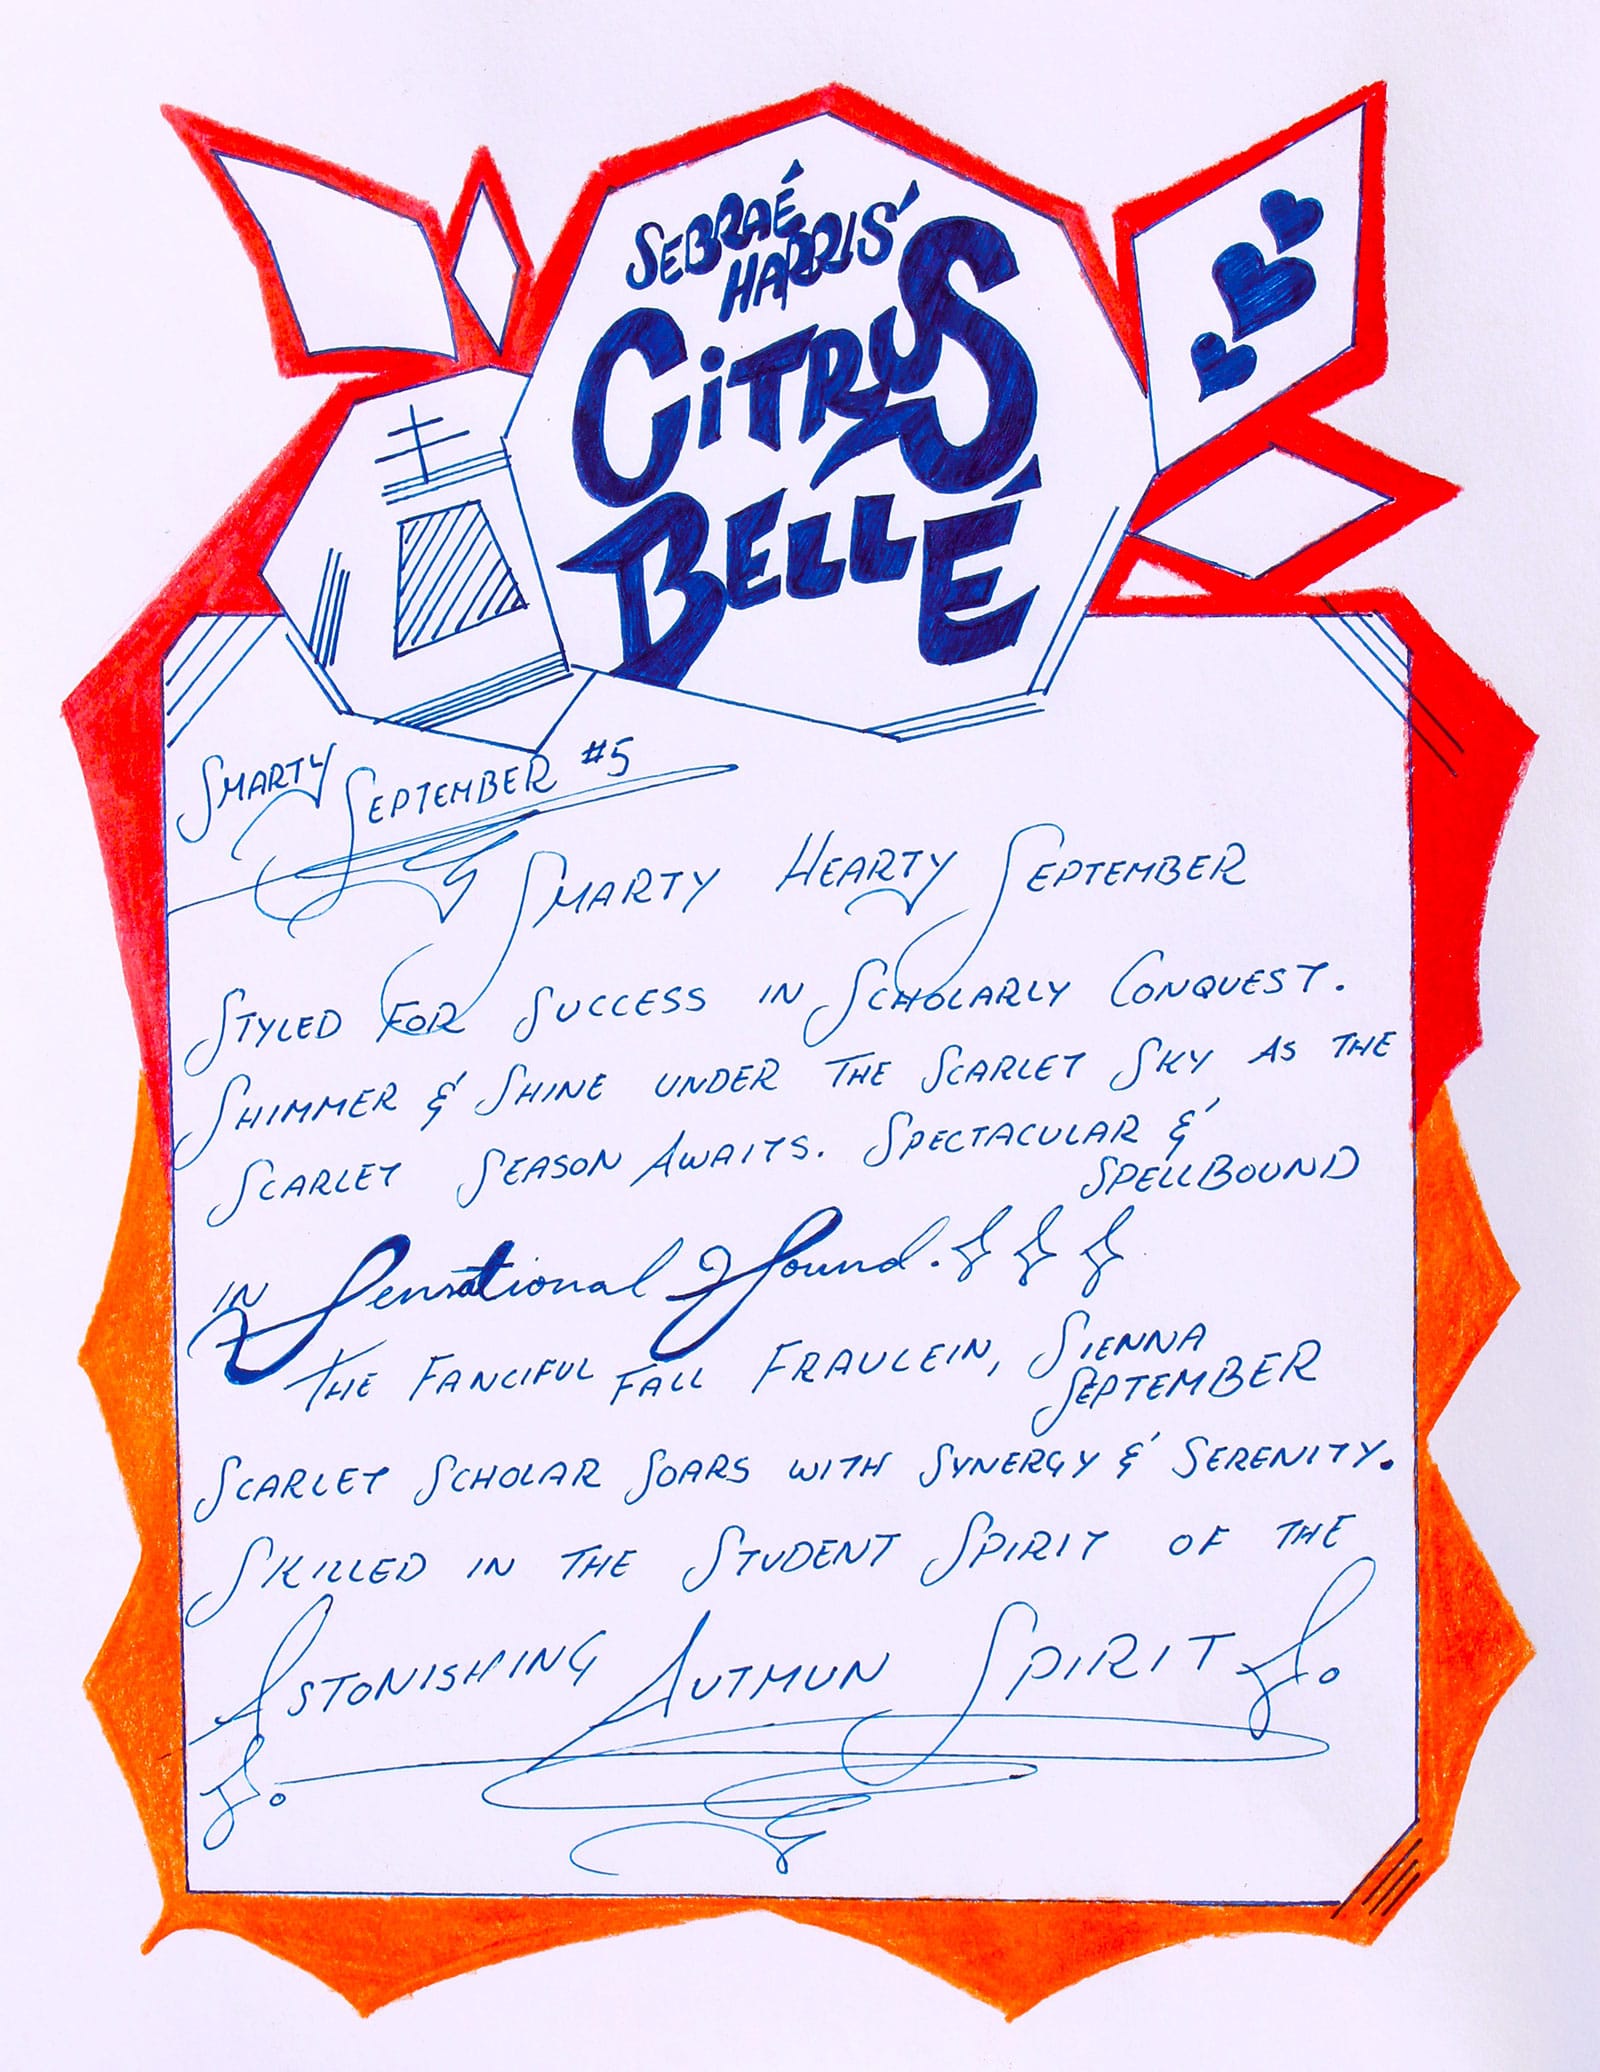 SEBRAÉ
HARRIS'
CITRUS
BELLÉ
SMARTY
SEPTEMBER #5
SMARTY HEARTY SEPTEMBER
STYLED FOR SUCCESS IN SCHOLARLY CONQUEST.
SHIMMER & SHINE UNDER THE SCARLET SKY AS THE
SCARLET SEASON AWAITS. SPECTACULAR &
SPELLBOUND
IN Sensational Sound.
THE FANCIFUL FALL FRAULEIN, SIENNA
SEPTEMBER
SCARLET SCHOLAR SOARS WITH SYNERGY & SERENITY.
SKILLED IN THE STUDENT SPIRIT OF THE
ASTONISHING AUTMUN SPIRIT